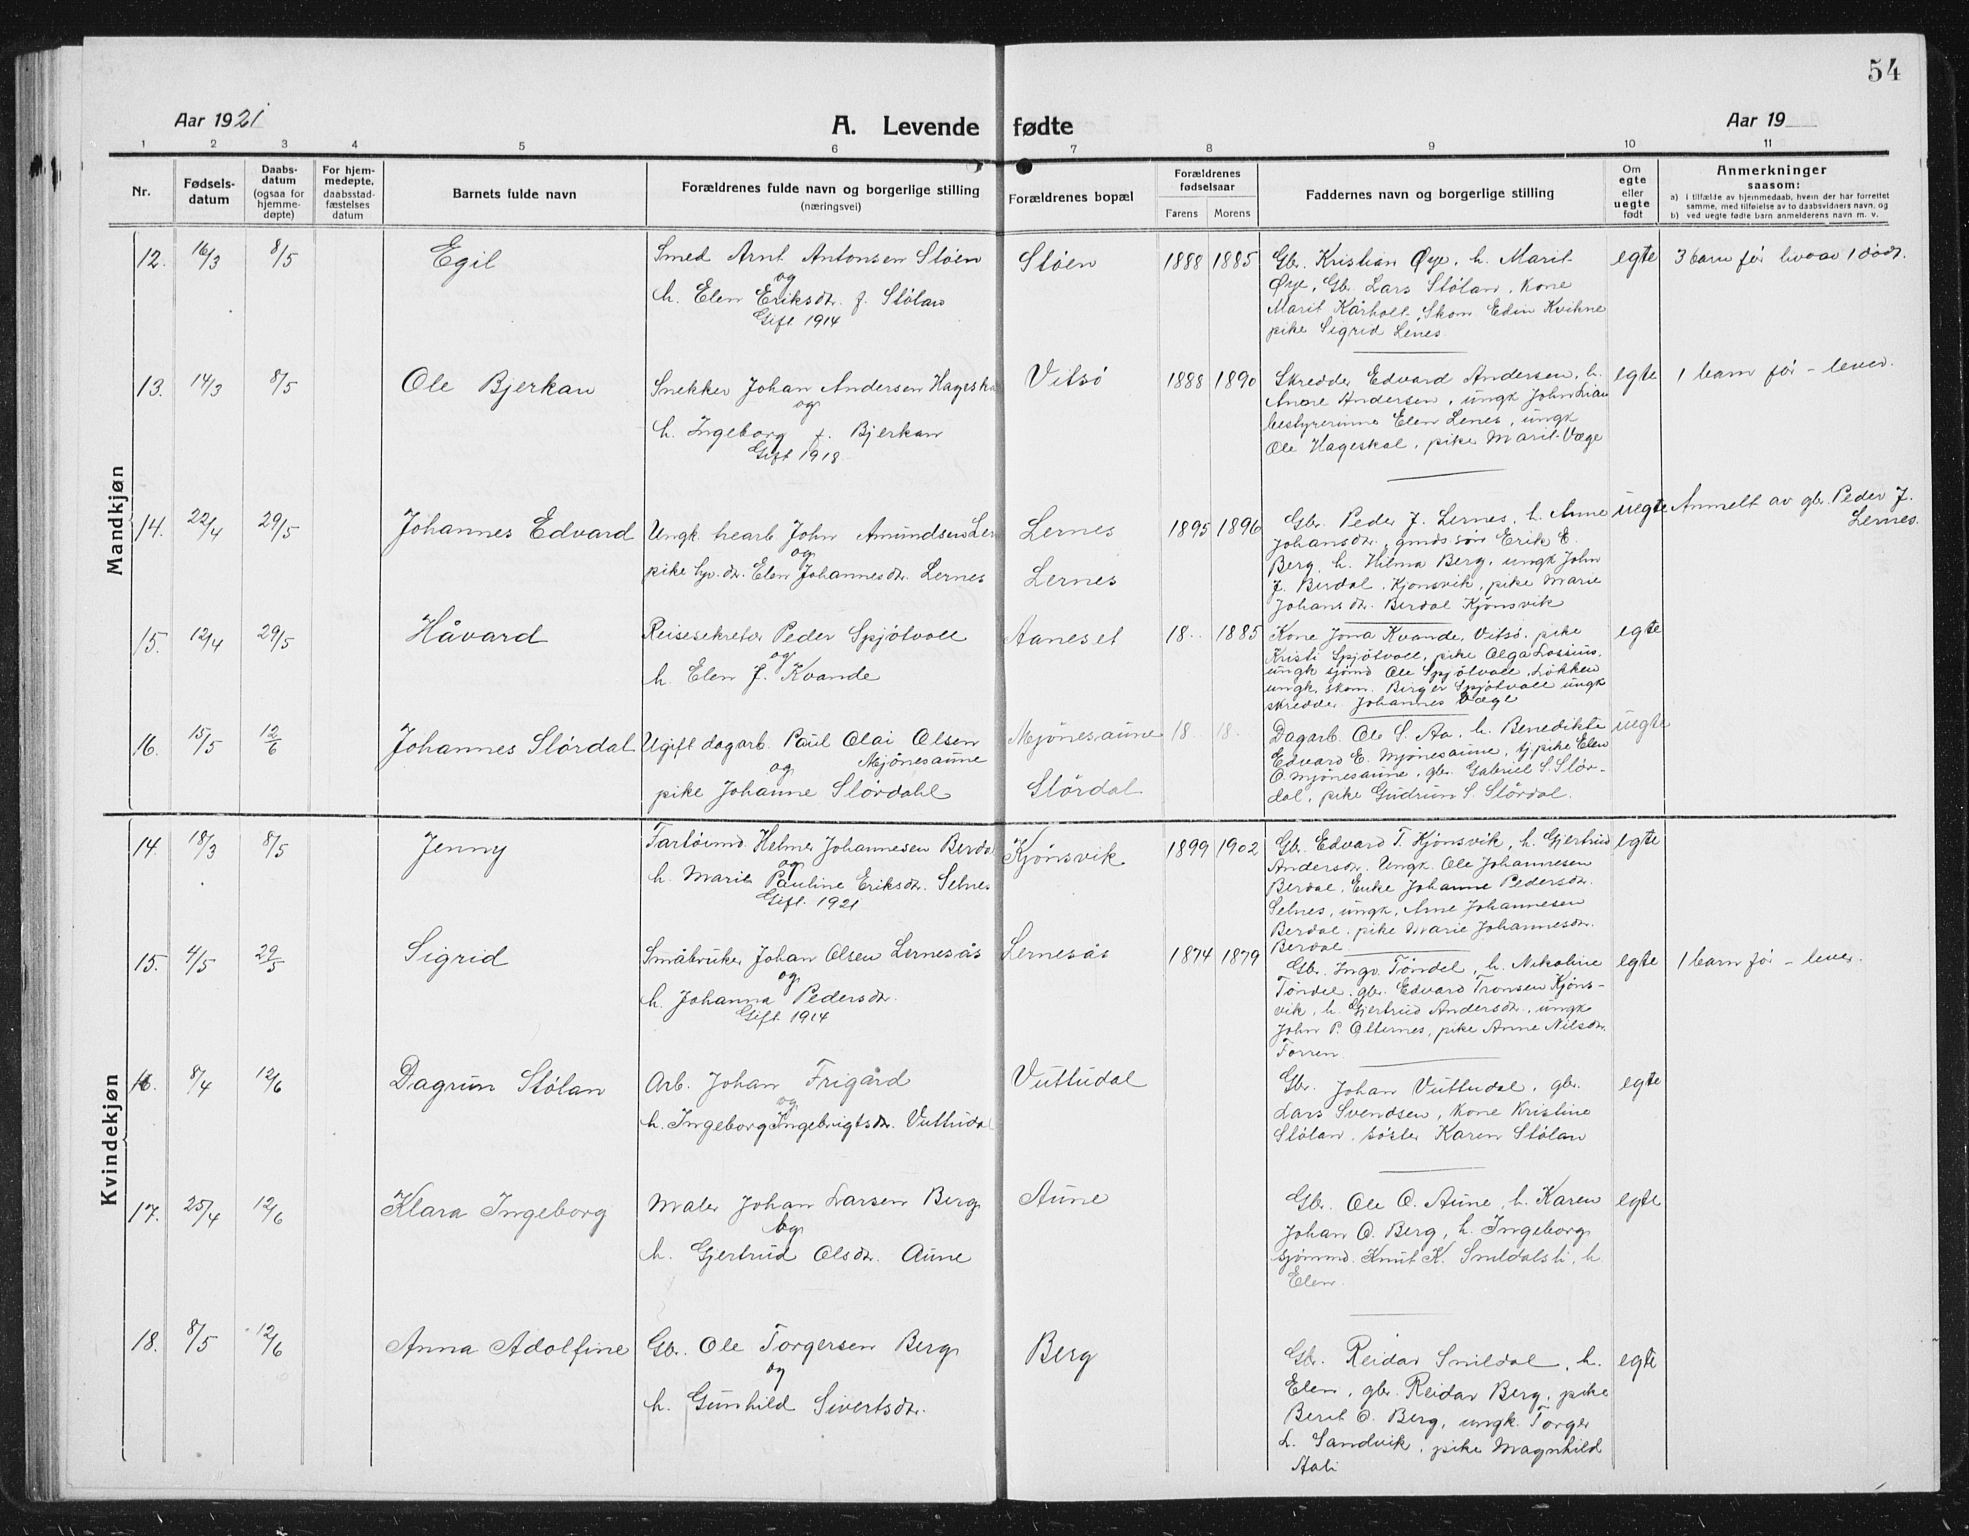 54
Aar 1921
A. Levende fødte
Aar 19
1 2 3 4 5 6 7 8 9 10 11
Nr.
Fødsels-
datum
Daabs-
datum
(ogsaa for
hjemme-
døpte)
For hjem-
medøpte,
daabsstad-
fæstelses
datum
Barnets fulde navn
Forældrenes fulde navn og borgerlige stilling
(næringsvei)
Forældrenes bopæl
Forældrenes
fødselsaar
Farens Morens
Faddernes navn og borgerlige stilling
Om
egte
eller
uegte
født
Anmerkninger
saasom:
a) i tilfælde av hjemmedaab, hvem der har forrettet
samme, med tilføielse av to daabsvidners navn, og
b) ved uegte fødte barn anmelderens navn m. v.
Mandkjøn
12. 16/3 8/5 Egil
Smed Arnt Antonsen Støen
og
h. Elen Eriksdr. f. Stølan
Gift 1914
Støen 1888 1885
Gbr. Kristian Øye, h. Marit
Øye, Gbr. Lars Stølan, kone
Marit Kårholt, Skom. Edin Kvihne
pike Sigrid Lenes.
egte
3 barn før hvoav 1 død.
13. 14/3 8/5 Ole Bjerkan
Snekker Johan Andersen Hageska
og
h. Ingeborg f. Bjerkan
Gift 1918
Vitsø 1888 1890
Skredder Edvard Andersen, h.
Anne Andersen, ungk John Lian
bestyrerinne Elen Lenes, ungk
Ole Hageskal, pike Marit Væge
egte
1 barn før – lever.
14. 22/4 29/5 Johannes Edvard
Ungk. hearb John Amundsen Ler
og
pike hp. dr. Elen Johannesdr. Lernes
Lernes
Lernes
1895 1896
Gbr. Peder J. Lernes, h. Anne
Johansdr., gmds søn Erik E.
Berg, h. Hilma Berg, ungk John
J. Berdal, Kjønsvik, pike Marie
Johansdr. Berdal Kjønsvik
uegte
Anmelt av gbr. Peder J.
Lernes.
15. 12/4 29/5 Håvard
Reisesekretær Peder Spjøtvoll
og
h. Elen J. Kvande
Aaneset 18.. 1885
Kone Jona Kvande, Vitsø, pike
Kristi Spjøtvoll, pike Olga Lossius,
ungk sjømd Ole Spjøtvoll, Løkken
ungk, skom. Birger Spjøtvoll ungk
skredder Johannes Væge
egte
16. 15/5 12/6 Johannes Størdal
Ugift dagarb. Paul Olai Olsen
Mjønesaune
og
pike Johanne Størdahl
Mjønesaune
Størdal
18. 18.
Dagarb. Ole S. Aa, h. Benedikte
Edvard E. Mjønesaune, tj.pike Elen
O. Mjønesaune, gbr. Gabriel S. Stør-
dal, pike Gudrun S. Størdal.
uegte
Kvindekjøn
14. 18/3 8/5 Jenny
Fartøimd. Helmer Johannesen Berda
og
h. Marie Pauline Eriksdr. Selnes
Gift 1921
Kjønsvik 1899 1902
Gbr. Edvard T. Kjønsvik, h. Gjertrud
Andersdr. Ungk. Ole Johannesen
Berdal, Enke Johanne Pedersdr.
Selnes, ungk, Arne Johannesen
Berdal, pike Marie Johannesdr.
Berdal
egte
15. 4/5 29/5 Sigrid
Småbruker Johan Olsen Lernesås
og
h. Johanna Pedersdr.
Gift 1914
Lernesås 1874 1879
Gbr. Ingv. Tøndel, h. Nikoline
Tøndel, gbr. Edvard Tronsen Kjøns-
vik, h. Gjertrud Andersdr., ungk
John P. Olternes, pike Anne Nilsdr.
Forren.
egte
1 barn før – lever.
16. 8/4 12/6 Dagrun Stølan
Arb. Johan Frigård
og
h. Ingeborg Ingebrigtsdr. Vuttudal
Vuttudal
Gbr. Johan Vuttudal, gbr.
Lars Svendsen, kone Kristine
Stølan, søster Karen Stølan
egte
17. 25/4 12/6 Klara Ingeborg
Maler Johan Larsen Berg
og
h. Gjertrud Olsdr. Aune
Aune
Gbr. Ole O. Aune, h. Karen
Johan O. Berg, h. Ingeborg
sjømmd. Knut K. Snildalsli, h.
Elen.
egte
18. 8/5 12/6 Anna Adolfine
Gbr. Ole Torgersen Berg
og
h. Gunhild Sivertsdr.
Berg
Gbr. Reidar Snildal, h.
Elen, gbr. Reidar Berg, pike
Berit O. Berg, ungk. Torger
L. Sandvik, pike Magnhild
Aali
egte